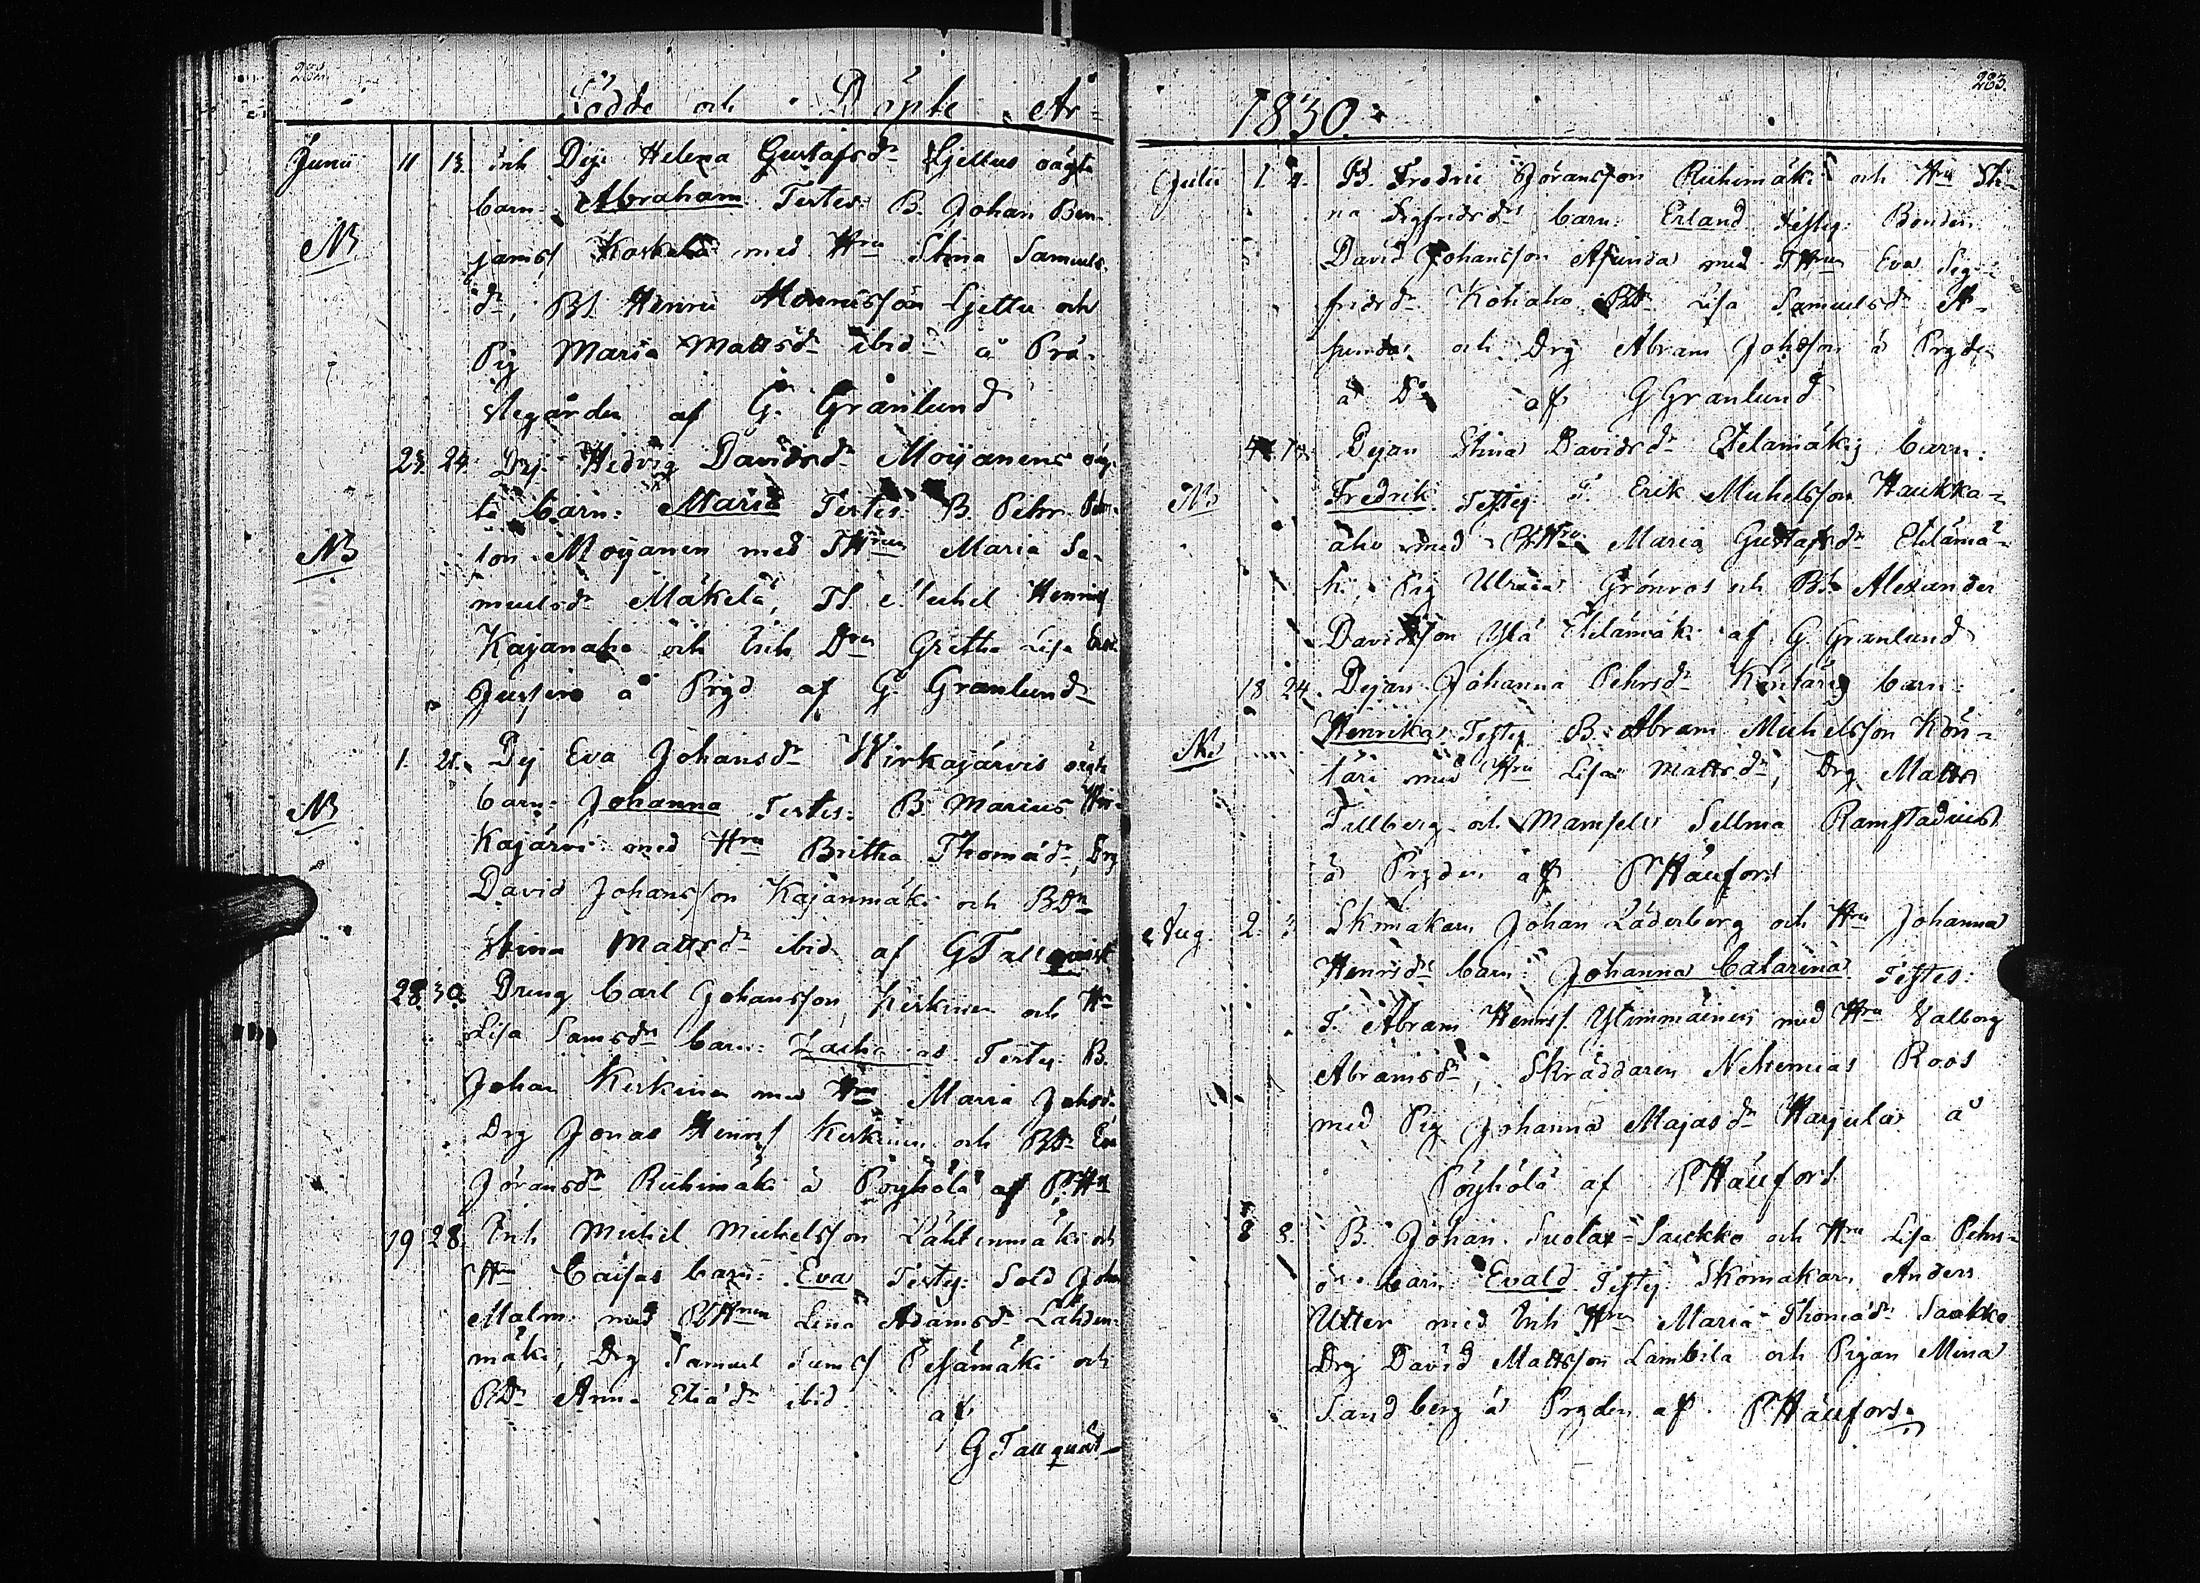 Födde och Döpte År
Junii 11 13. Inh Dejs Helena Gustafsdr Ljettus oägta
barn: Abraham Testes: B. Johan Ben-
NB
jamsf Koskela med Hru Stina Samuels-
dr, BS. Henric Henricsson Ljettu och
Pig Maria Mattsdr ibid å Prä-
stegården af G. Granlund
23. 24. Dej. Hedvig Davidsdr Moijanens oäg-
ta barn: Maria Testes: B. Pehr Pehrs-
NB
son Moijanen med THrun Maria Sa-
muelsdr Mäkelä, TS Michel Henricsf
Kajanaho och Inh Dr Gretha Lisa
å Prgd af G. Granlund
1. 21. Pij Eva Johansdr Wirkajärvis oägta
NB
barn: Johanna Testes: B. Marius Wir-
kajärvi med Hru Britha Thomædr, Drg
David Johansson Kajanmäki och BDr
Stina Mattsdr ibid af G Tallqvist
28. 30. Dreng Carl Johansson Kerkinen och Hu
Lisa Samsdrs barn: Zacharias Testes: B.
Johan Kerkinen med Hru Maria Johsdr
Drg Jonas Henrsf Kerkinen och BDr Eva
Jöransdr Riihimäki å Pöyhölä af PHn
19. 28. Inh Michel Michelsson Lahtinmäki och
Hru Caisas barn: Eva Testes: Sold Johan
Malm med BHrun Lena Adamsdr Lahden-
mäki, Drg Samuel Samsf Pesämäki och
PDr Anna Eliædr ibid. af
G Tallqvist
283.
1830.
Julii 1. 4. B. Fredric Jöransson Riihimäki och Hru Sti-
na Sigfridsdrs barn: Erland Testes: Bonden
David Johansson Asunda med THrun Eva Sig-
fridsdr Kohaho BDr Lisa Samuelsdr A-
sunda och Drg Abram Johsson å Prgden
å Do af G Granlund
4. 10. Pijan Stina Davidsdr Etelamäkis barn:
NB
Fredrik Testes: T. Erik Michelsson Haukka-
aho med BHru Maria Gustafsdr Etelämä-
ki, Pig Ulrica Grönroos och BS. Alexander
Davidsson Ylä Etelämäki af G. Granlund
18. 24. Pijan Johanna Pehrsdr Köntäris barn:
NB
Henrika Testes B. Abram Michelsson Kön-
täri med Hru Lisa Mattsdr, Drg Matts
Tillberg och Mamselle Sellma Ramstadius
å Prgden af P Häufors
Aug. 2. 3. Skomakarn Johan Läderberg och Hru Johanna
Henrsdrs barn: Johanna Catarina Testes:
T. Abram Henrsf Ylimmäinen med Hru Valborg
Abramsdr, Skräddaren Nehemias Roos
med Pig Johanna Majasdr Harjula å
Pöyhölä af P Häufors
8 8. B. Johan Suolax-Saukko och Hru Lisa Pehrs-
drs barn: Evald Testes Skomakarn Anders
Utter med Inh Hru Maria Thomædr Saukko
Drg David Mattsson Lambila och Pigan Mina
Sandberg å Prgden af P Häufors